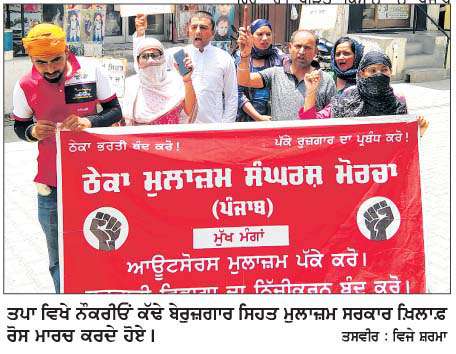 ਠੇਕਾ ਭਰਤੀ ਬੰਦ ਕਰੋ! ਪੱਕੇ ਰੁਜ਼ਗਾਰ ਦਾ ਪ੍ਰਬੰਧ ਕਰੋ!
ਠੇਕਾ ਮੁਲਾਜ਼ਮ ਸੰਘਰਸ਼ ਮੋਰਚਾ
(ਪੰਜਾਬ)
ਮੁੱਖ ਮੰਗਾਂ
ਆਊਟਸੋਰਸ ਮੁਲਾਜ਼ਮ ਪੱਕੇ ਕਰੋ।
ਦਾ ਨਿੱਜੀਕਰਨ ਬੰਦ ਕਰੋ।
ਤਪਾ ਵਿਖੇ ਨੌਕਰੀਓਂ ਕੱਢੇ ਬੇਰੁਜ਼ਗਾਰ ਸਿਹਤ ਮੁਲਾਜ਼ਮ ਸਰਕਾਰ ਖ਼ਿਲਾਫ਼
ਰੋਸ ਮਾਰਚ ਕਰਦੇ ਹੋਏ। ਤਸਵੀਰ : ਵਿਜੇ ਸ਼ਰਮਾ